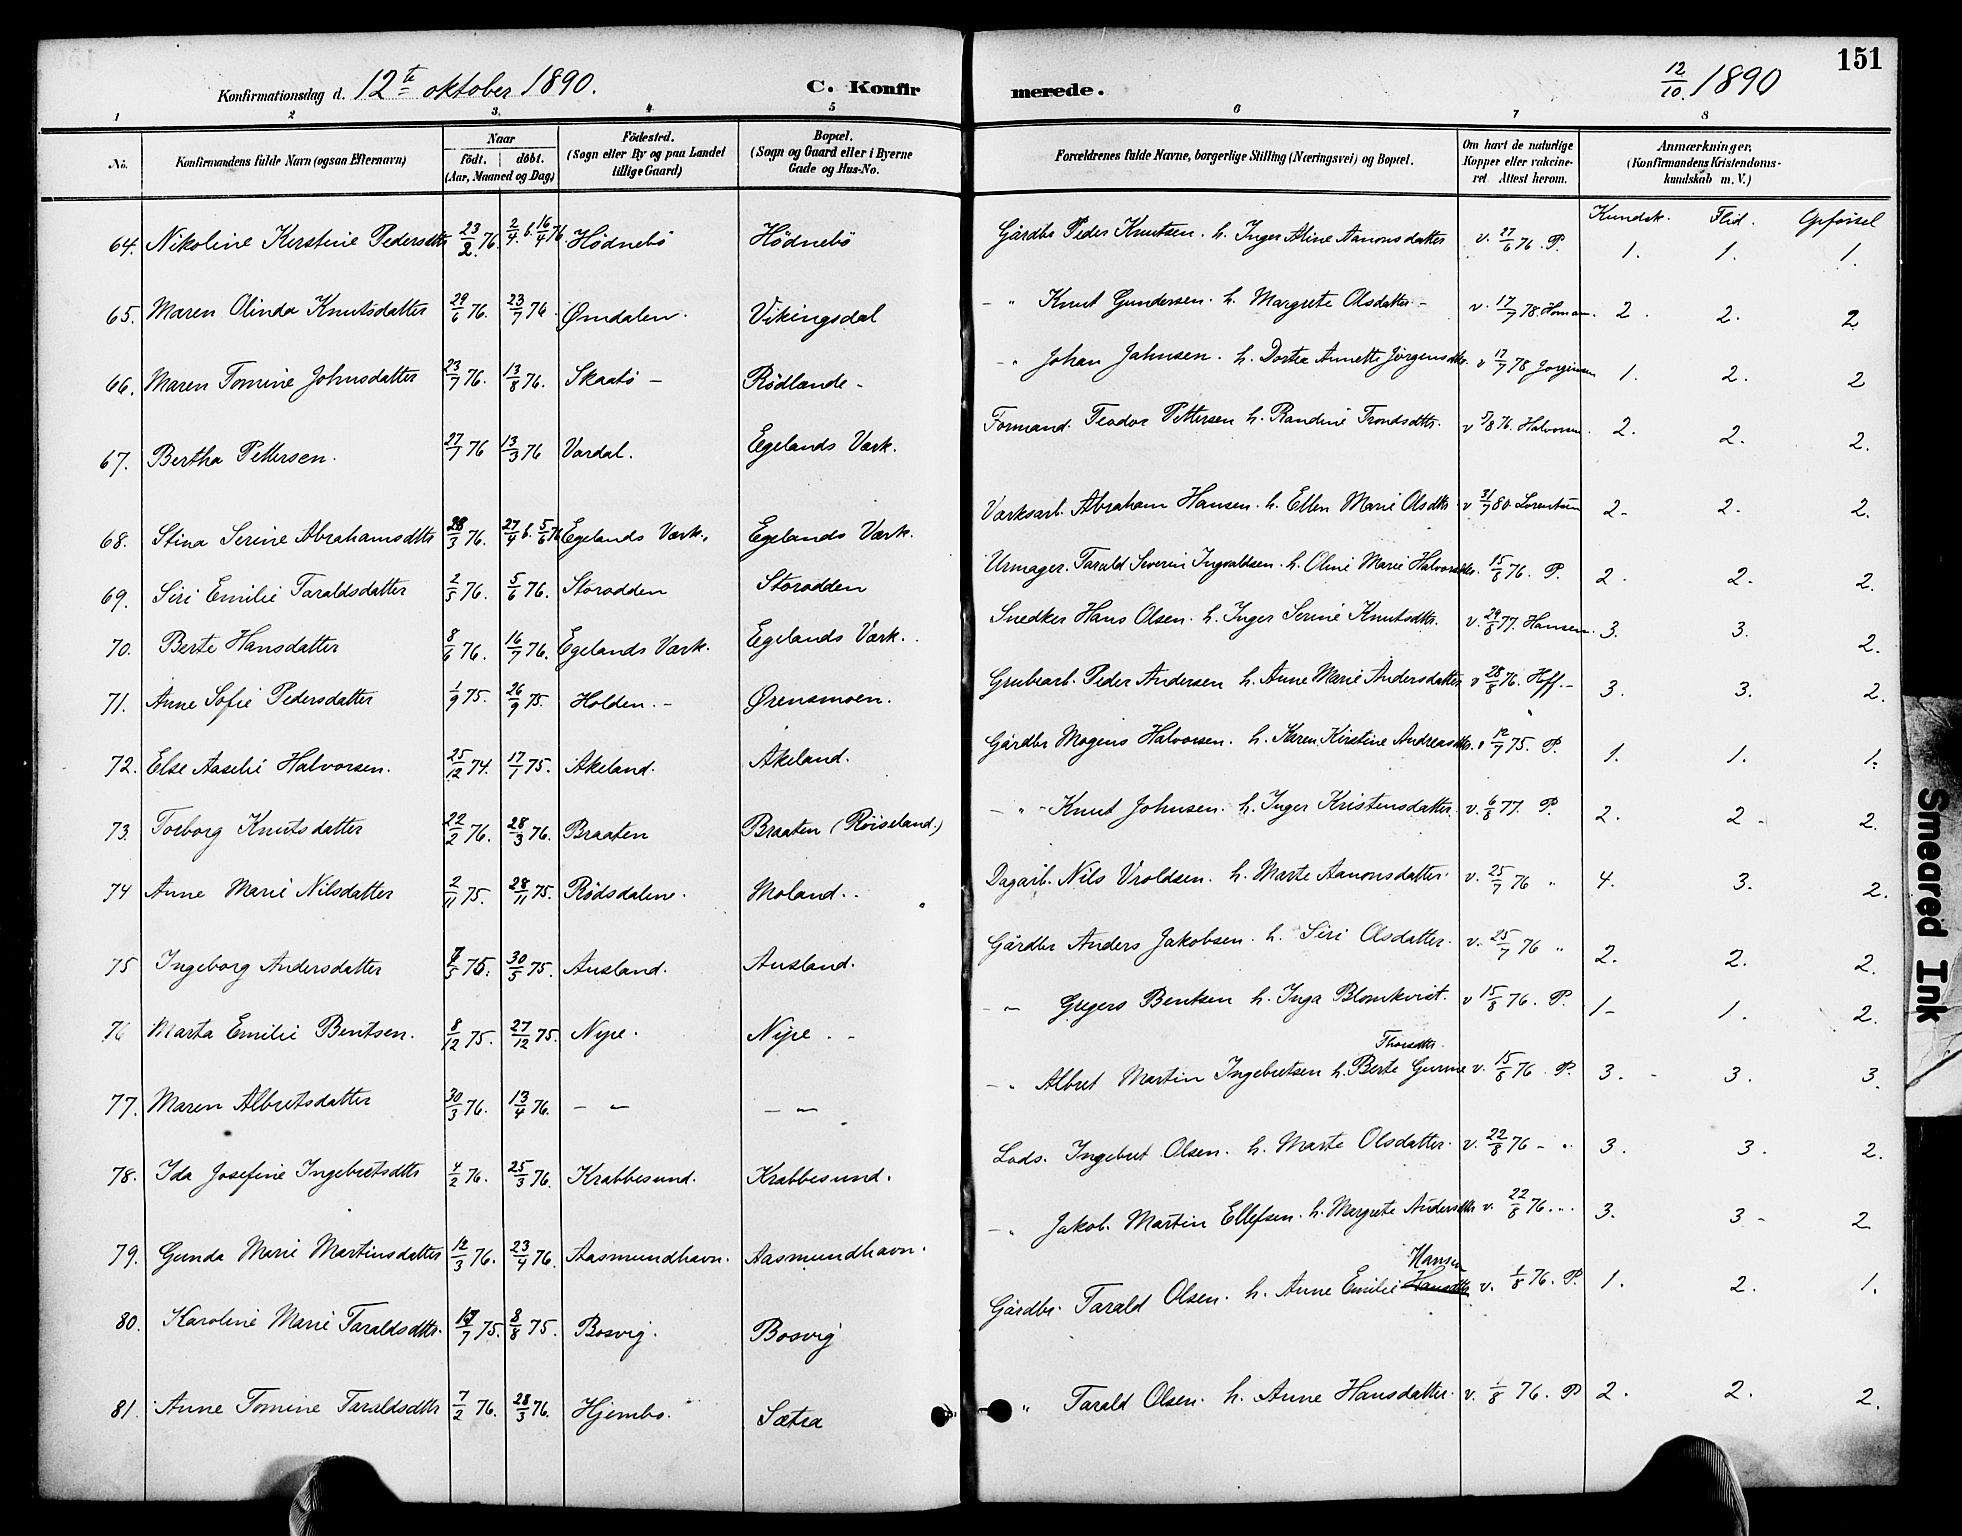 151
Konfirmationsdag d. 12te oktober 1890. C. Konfirmerede. 12/10 1890
1 2 3. 4 5 6 7 8
No. Konfirmandens fulde Navn (ogsaa Efternavn) Naar födt. döbt. (Aar, Maaned og Dag) Födested. (Sogn eller By og paa Landet tillige Gaard) Bopæl. (Sogn og Gaard eller i Byerne Gade og Hus-No. Forældrenes fulde Navne, borgerlige Stilling (Næringsvei) og Bopæl. Om havt de naturlige Kopper eller vakcineret Attest herom. Anmærkninger, (Konfirmandens Kristendomskundskab m. V.)
Kundsk. Flid. Opförsel
64. Nikoline Kirstine Pedersdtr 23/2 76. 2/4 b. 16/4 76 Hödnebö Hödnebö Gårdbr Peder Knutsen. h. Inger Aline Aanonsdatter v. 27/6 76. P. 1. 1. 1.
65. Maren Olinda Knutsdatter 29/6 76. 23/7 76. Ømdalen. Vikingsdal - " Knut Gundersen. h. Margrete Olsdatter - v. 17/7 78. Homan. 2. 2. 2
66. Maren Tomine Johnsdatter 23/7 76. 13/8 76. Skaatö - Rödlande - - " Johan Jahnsen. h. Dortea Annette Jörgensdtr. v 17/7 78 Jorginsen 1. 2. 2
67. Bertha Pettersen. 27/7 76 13/3 76 Vardal. Egelands Værk. Formand. Teodor Pettersen h. Randine Trondsdtr. v 5/8 76. Halvorsen. 2. 2. 2.
68. Stina Serine Abrahamsdtr 28/3 76. 27/4 b. 5/6 76 Egelands Værk. Egelands Værk. Værksarb. Abraham Hansen. h. Ellen Marie Olsdtr v 31/7 80. Lorentsen 2- 2. 2.
69. Siri Emilie Taraldsdatter 2/5 76. 5/6 76. Storodden Storodden Urmager. Tarald Severin Ingvaldsen. h. Oline Marie Halvorsdtr. 15/8 76. P. 2. 2. 2.
70. Berte Hansdatter 8/6 76. 16/7 76. Egelands Værk. Egelands Værk. Snedker Hans Olsen. h. Inger Serine Knutsdtr. v. 29/8 77. Hansen. 3. 3. 2.
71. Anne Sofie Pedersdatter 1/9 75. 26/9 75. Holden. - Ørensmoen. Grubearb. Peder Andersen h. Anne Marie Andersdatter v 28/8 76. Hoff. - 3. 3. 2.
72. Else Aaselie Halvorsen. 25/12 74. 17/1 75. Akeland. Akeland. Gårdbr Mogens Halvorsen. h. Karen Kirstine Andreasdtr. v 12/7 75. P. 1. 1. 1.
73. Torborg Knutsdatter 22/2 76. 28/3 76. Braaten Braaten (Röiseland.) - " - Knut Johnsen. h. Inger Kristensdatter. v. 6/8 77. P. 2. 2 - 2.
74 Anne Marie Nilsdatter 2/11 75. 28/11 75. Rödsdalene. Moland.. Dagarb. Nils Vroldsen. h. Marte Aanonsdatter. v. 25/7 76 " 4. 3. 2.
75 Ingeborg Andersdatter 7/5 75. 30/5 75. Ausland. Ausland. Gårdbr Anders Jakobsen. h. Siri Olsdatter. v. 25/7 76 " 2. 2. 2.
76 Marta Emilie Bentsen. 8/12 75. 27/12 75. Nipe. Nipe. - - " Gregers Bentsen h. Inga Blomkvist. v 15/8 76. P. 1- 1. 2.
Thorsdtr.
77. Maren Albretsdatter 30/3 76. 13/4 76. - " - " - " Albret Martin Ingebretsen h. Berte Gurine v. 15/8 76. P. 3. - 3. 3.
78. Ida Josefine Ingebretsdtr 4/2 76. 25/3 76. Krabbesund. Krabbesund. Lods. Ingebret Olsen. h. Marte Olsdatter. v. 22/8 76 - " 3. 3. 2.
79. Gunda Marie Martinsdatter 12/3 76. 23/4 76. Aasmundhavn. Aasmundhavn. - " Jakob. Martin Ellefsen. h. Margrete Andersdtr v. 22/8 76. " 3. 3 - 2.
Hansen
80. Karoline Marie Taraldsdtr. 17/7 75. 8/8 75. Bosvig. Bosvig Gårdbr. Tarald Olsen. h. Anne Emilie Hansdtr v. 1/8 76. P. 1. 2. 1.
81. Anne Tomine Taraldsdtr 7/2 76. 28/3 76. Hjembo. Sætra " Tarald Olsen. h. Anne Hansdatter. v. 1/8 76. P 2. 2. 2.
Smeared Ink